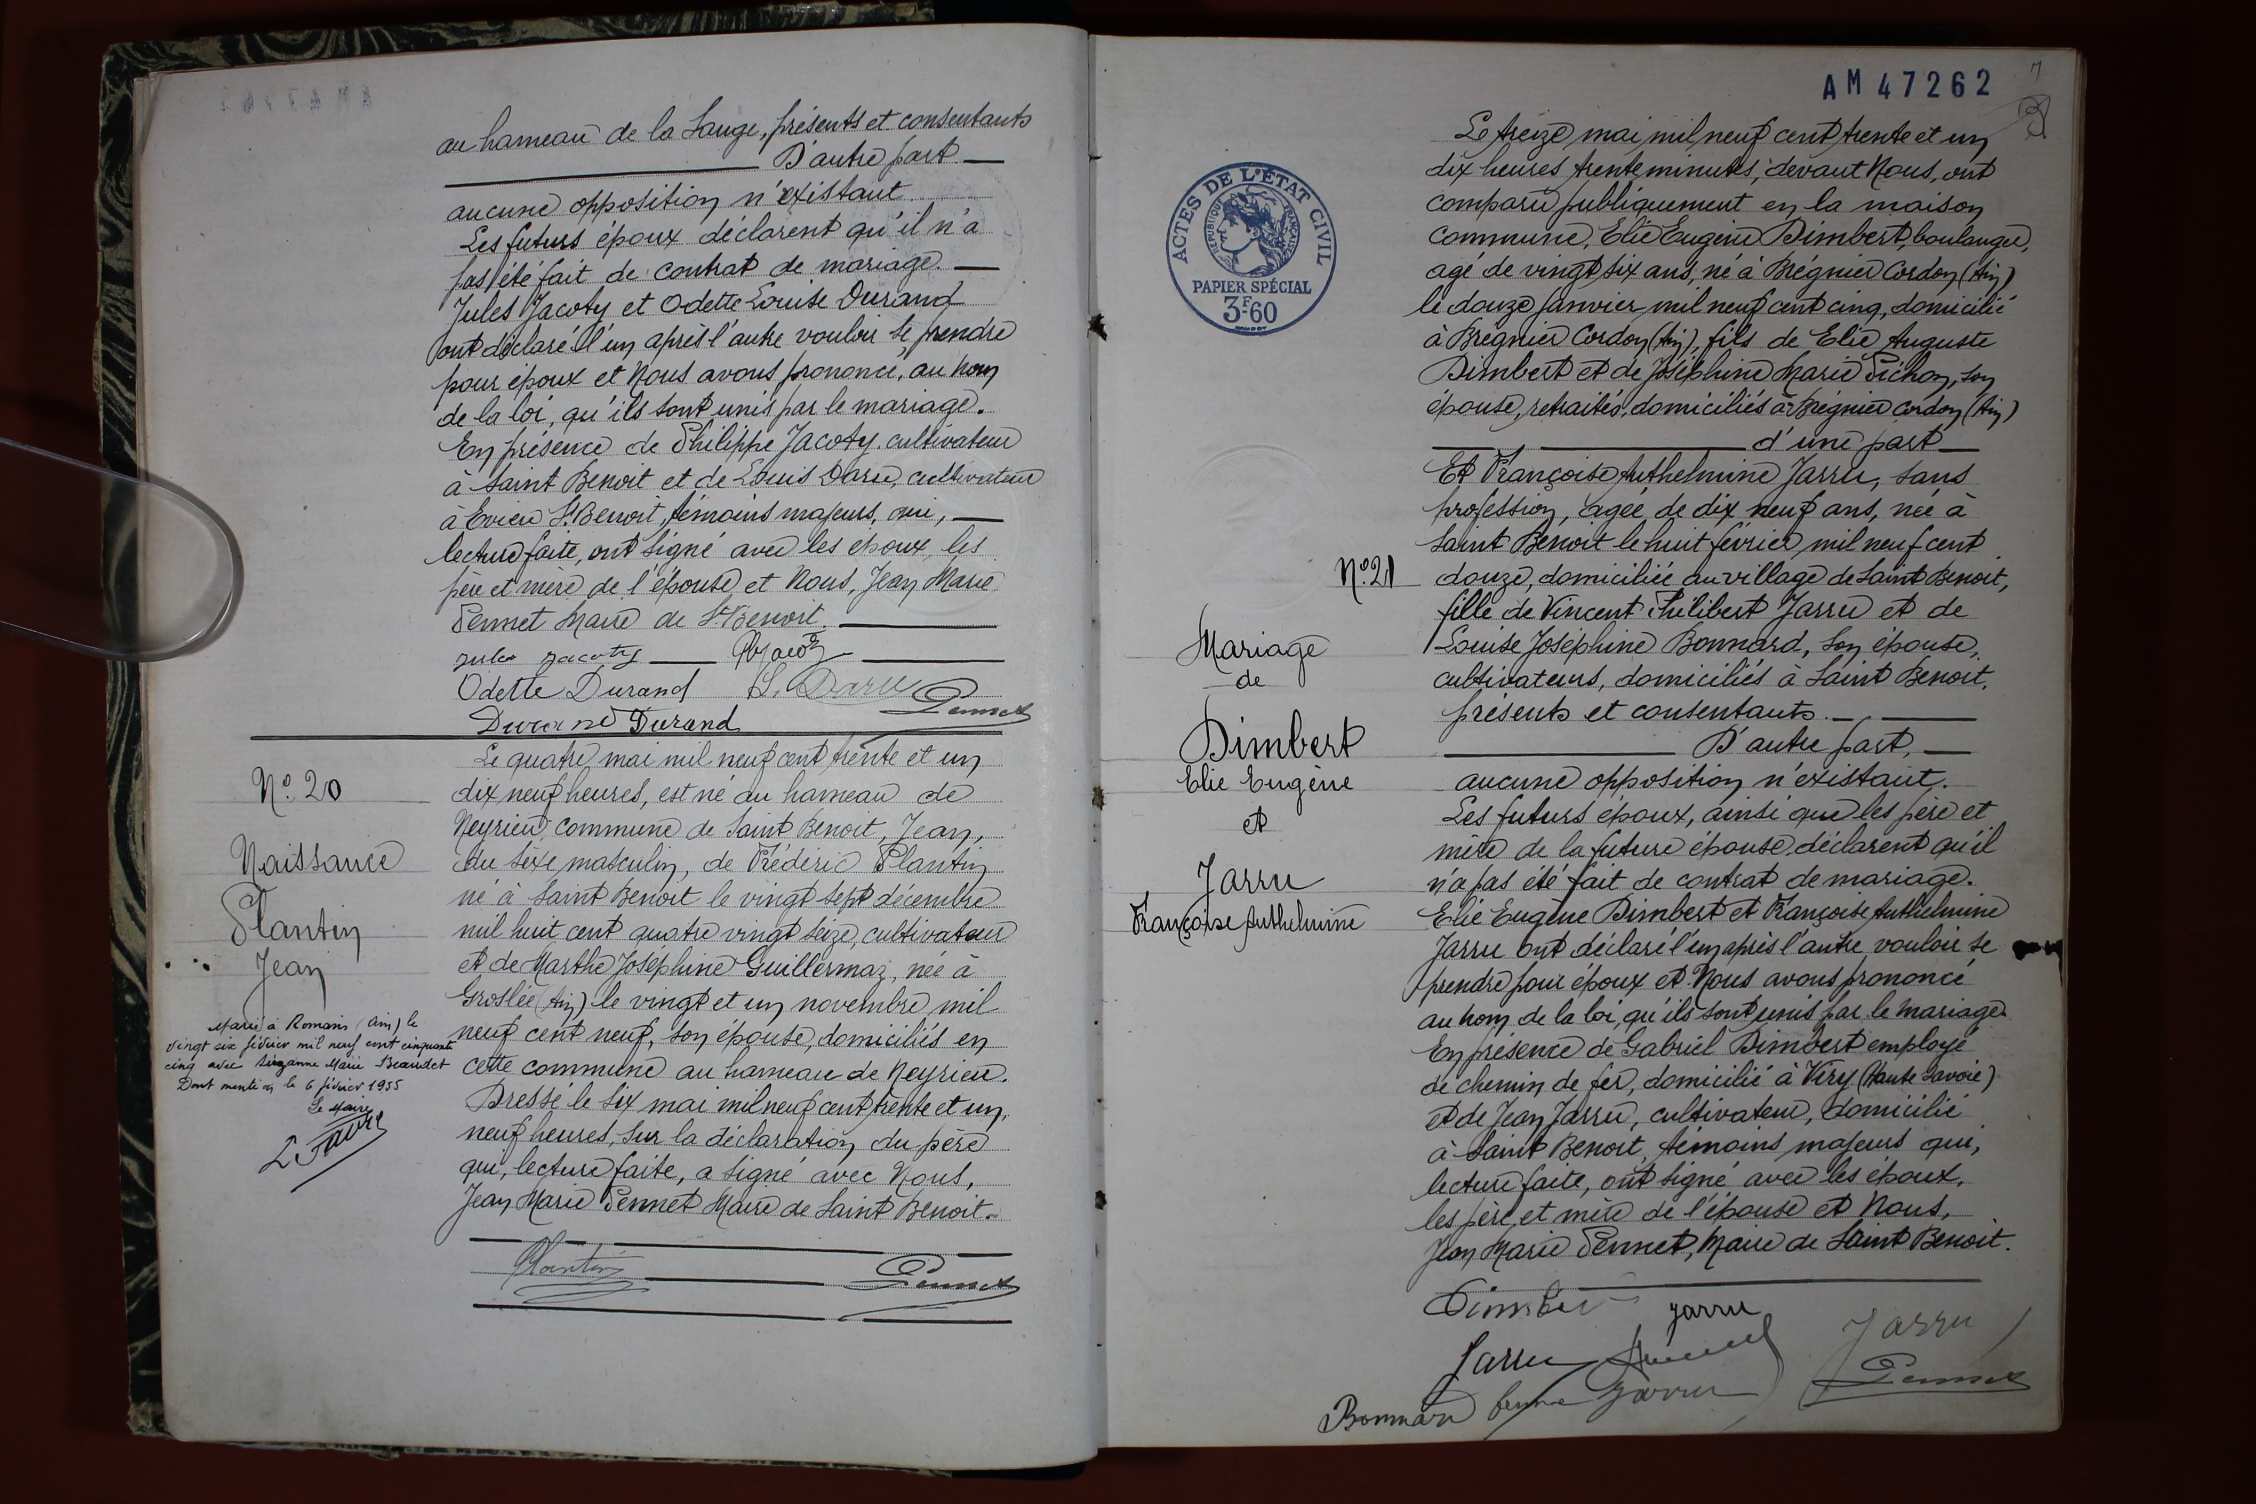 au hameau de la Sauge, présents et consentants
D'autre part
aucune opposition n'existant
Les futurs époux déclarent qu'il n'a
pas été fait de contrat de mariage.
Jules Jacoty et Odette Louise Durand
ont déclaré l'un après l'autre vouloir se prendre
pour époux et Nous avons prononcé, au nom
de la loi, qu'ils sont unis par le mariage.
En présence de Philippe Jacoty, cultivateur
à Saint Benoit et de Louis Daru, cultivateur
à Evieu St Benoit, témoins majeurs, qui,
lecture faite, ont signé avec les époux, les
père et mère de l'épouse et Nous, Jean Marie
Pennet Maire de St Benoit.
jules jacoty
Odette Durand L. Daru Pennet
Durand
Nº 20
Naissance
Plantin
Jean
Marié à Romans (Ain) le
vingt six février mil neuf cent cinquante
cinq avec Suzanne Marie Beaudet
Dont mention le 6 février 1955
Le Maire
L Favre
Le quatre mai mil neuf cent trente et un
dix neuf heures, est né au hameau de
Neyrieu commune de Saint Benoit, Jean,
du sèxe masculin, de Frédéric Plantin
né à Saint Benoit le vingt sept décembre
mil huit cent quatre vingt seize, cultivateur
et de Marthe Joséphine Guillermaz, née à
Groslée (Ain) le vingt et un novembre mil
neuf cent neuf, son épouse, domiciliés en
cette commune au hameau de Neyrieu.
Dressé le six mai mil neuf cent trente et un,
neuf heures, sur la déclaration du père
qui, lecture faite, a signé avec Nous,
Jean Marie Pennet Maire de Saint Benoit.
Plantin Pennet
AM 47262
7
ACTES DE L'ÉTAT CIVIL
RÉPUBLIQUE FRANÇAISE
PAPIER SPÉCIAL
3F.60
Nº 21
Mariage
de
Dimbert
Elie Eugène
et
Jarru
Françoise Anthelmine
Le treize mai mil neuf cent trente et un
dix heures trente minutes, devant Nous, ont
comparu publiquement en la maison
commune, Elie Eugène Dimbert, boulanger,
agé de vingt six ans, né à Brégnier Cordon (Ain)
le douze janvier mil neuf cent cinq, domicilié
à Brégnier Cordon (Ain), fils de Elie Auguste
Dimbert et de Joséphine Marie Pichon, son
épouse, retraités, domiciliés à Brégnier Cordon (Ain)
d'une part
Et Françoise Anthelmine Jarru, sans
profession, agée de dix neuf ans, née à
Saint Benoit le huit février mil neuf cent
douze, domiciliée au village de Saint Benoit,
fille de Vincent Philibert Jarru et de
Louise Joséphine Bonnard, son épouse,
cultivateurs, domiciliés à Saint Benoit,
présents et consentants.
D'autre part,
aucune opposition n'existant.
Les futurs époux, ainsi que les père et
mère de la future épouse, déclarent qu'il
n'a pas été fait de contrat de mariage.
Elie Eugène Dimbert et Françoise Anthelmine
Jarru ont déclaré l'un après l'autre vouloir se
prendre pour époux et Nous avons prononcé
au nom de la loi, qu'ils sont unis par le mariage.
En présence de Gabriel Dimbert employé
de chemin de fer, domicilié à Viry (Haute Savoie)
et de Jean Jarru, cultivateur, domicilié
à Saint Benoit, témoins majeurs qui,
lecture faite, ont signé avec les époux,
les père et mère de l'épouse et Nous,
Jean Marie Pennet, Maire de Saint Benoit.
Dimbert jarru
Jarru Jarru
Pennet
Bonnard femme Jarru